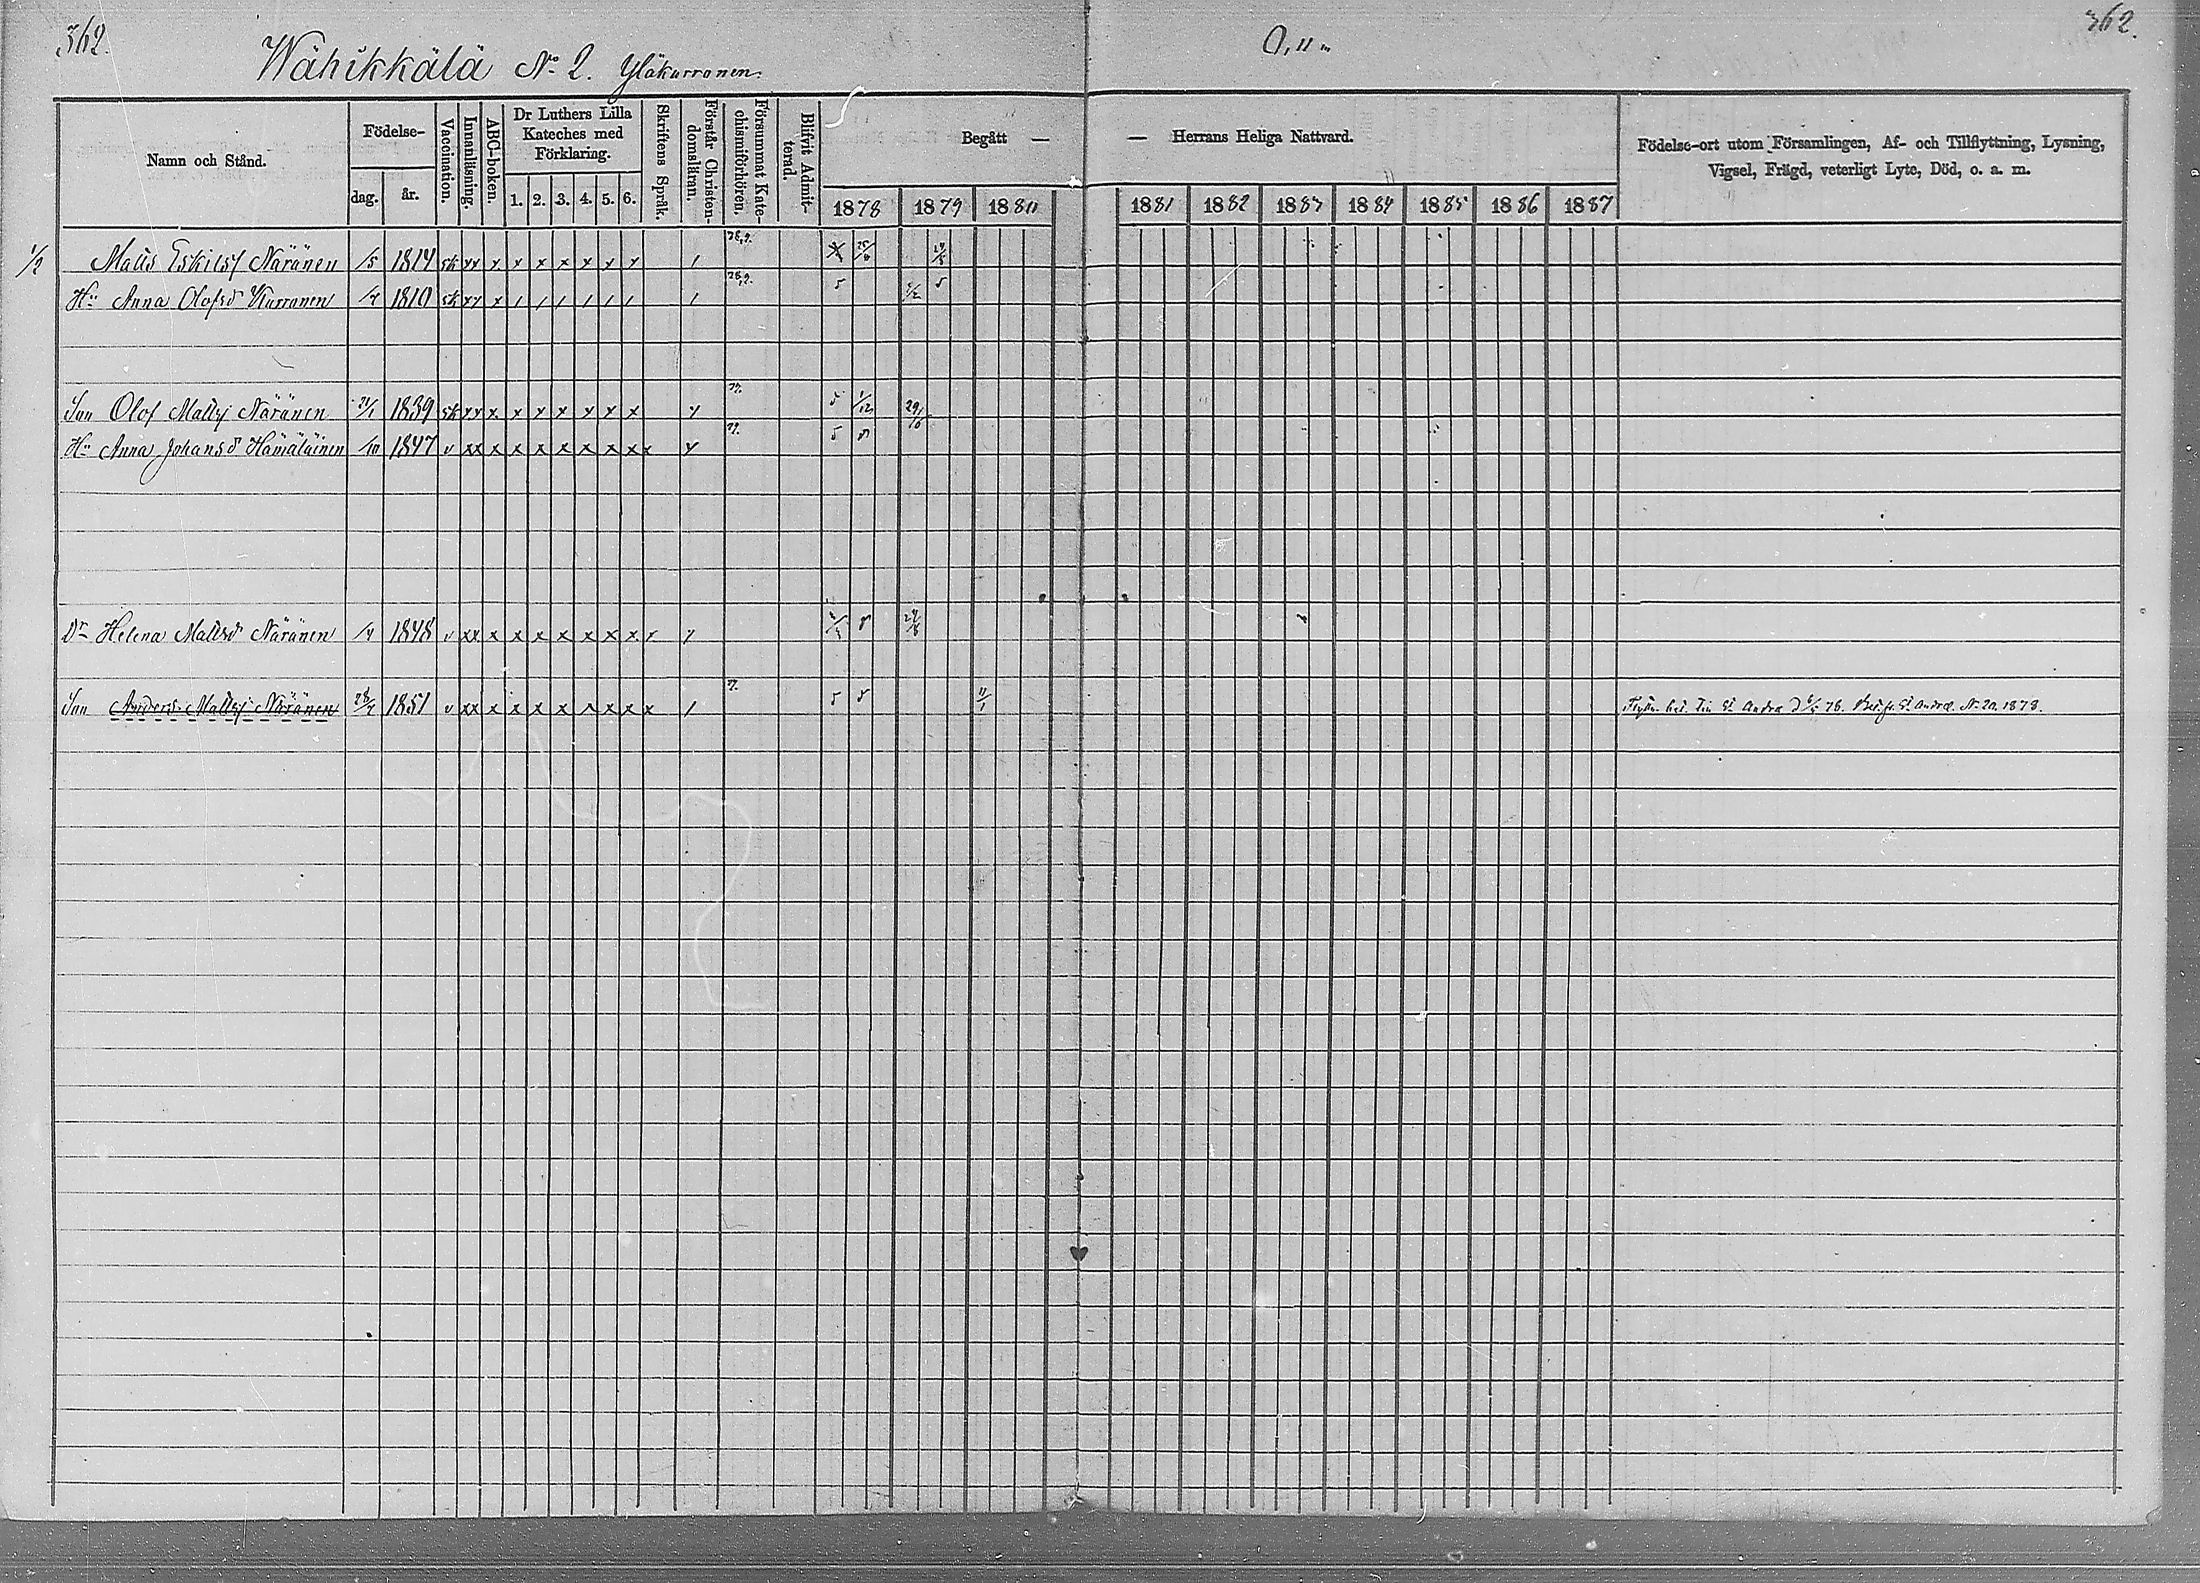 362.
Wähikkälä No 2. Yläkurronen.
362.
Namn och Stånd.
Födelse-
dag.
år.
Vaccination.
Innanläsning.
ABC-boken.
Dr Luthers Lilla
Kateches med
Förklaring.
1. 2. 3. 4. 5. 6.
Skriftens Språk.
Förstår Christen-
domsläran.
Försummat Kate-
chismiförhören.
Blifvit Admit-
terad.
Begått —
— Herrans Heliga Nattvard.
1878 1879 1880 1881 1882 1883 1884 1885 1886 1887
Födelse-ort utom Församlingen, Af- och Tillflyttning, Lysning,
Vigsel, Frägd, veterligt Lyte, Död, o. a. m.
1/2 Matts Eskilsf Näränen /5 1814 sk xx x x x x x x x /
Hu Anna Olofsd Kurronen /7 1810 sk xx x / / / / / / /
Son Olof Mattsf Näränen 21/1 1839 sk xx x x x x x x x x 1/12 29/6
Hu Anna Johansd Hämäläinen /10 1847 v xx x x x x x x x x x
Dr Helena Mattsd Näränen /4 1848 v xx x x x x x x x x
Son Anders Mattsf Näränen 1851 v xx x x x x x x x x / 11/1
St Andræ 78. St Andræ No 20. 1878.